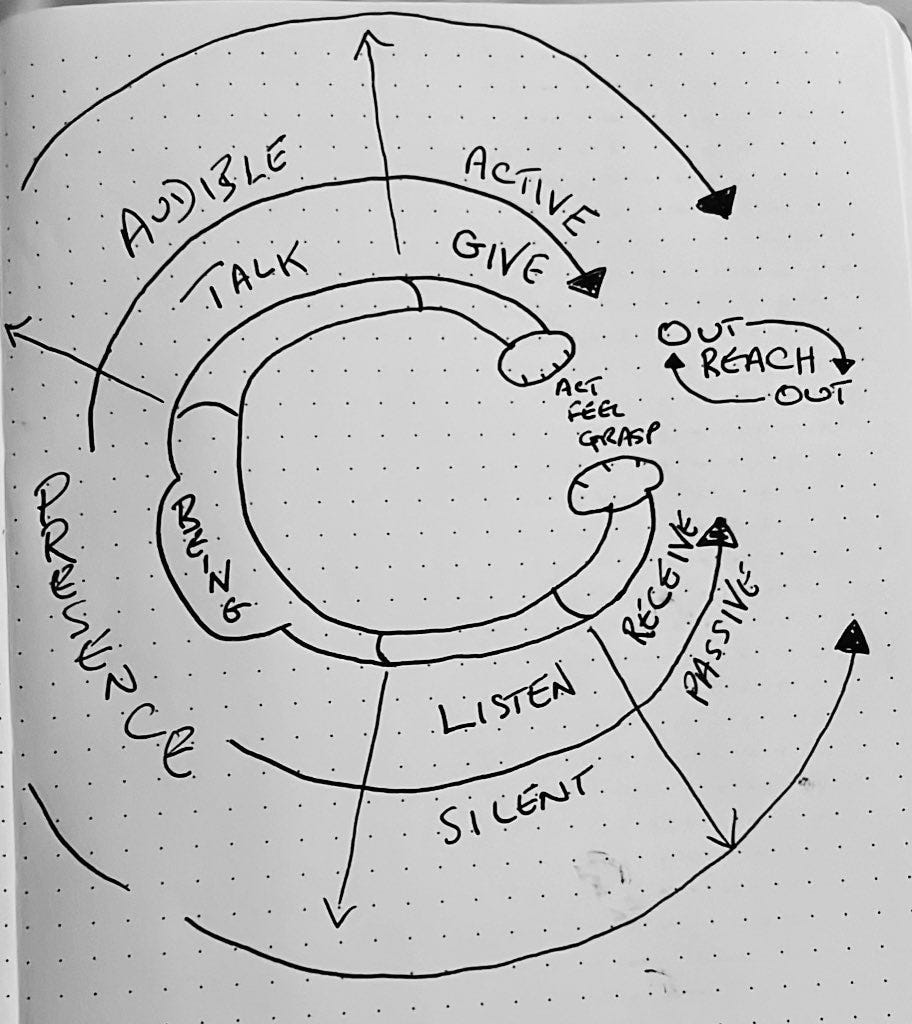 AUDIBLE
ACTIVE
TALK
GIVE
OUT
REACH
OUT
ACT
FEEL
GRASP
PRESENCE
BEING
RECEIVE
PASSIVE
LISTEN
SILENT